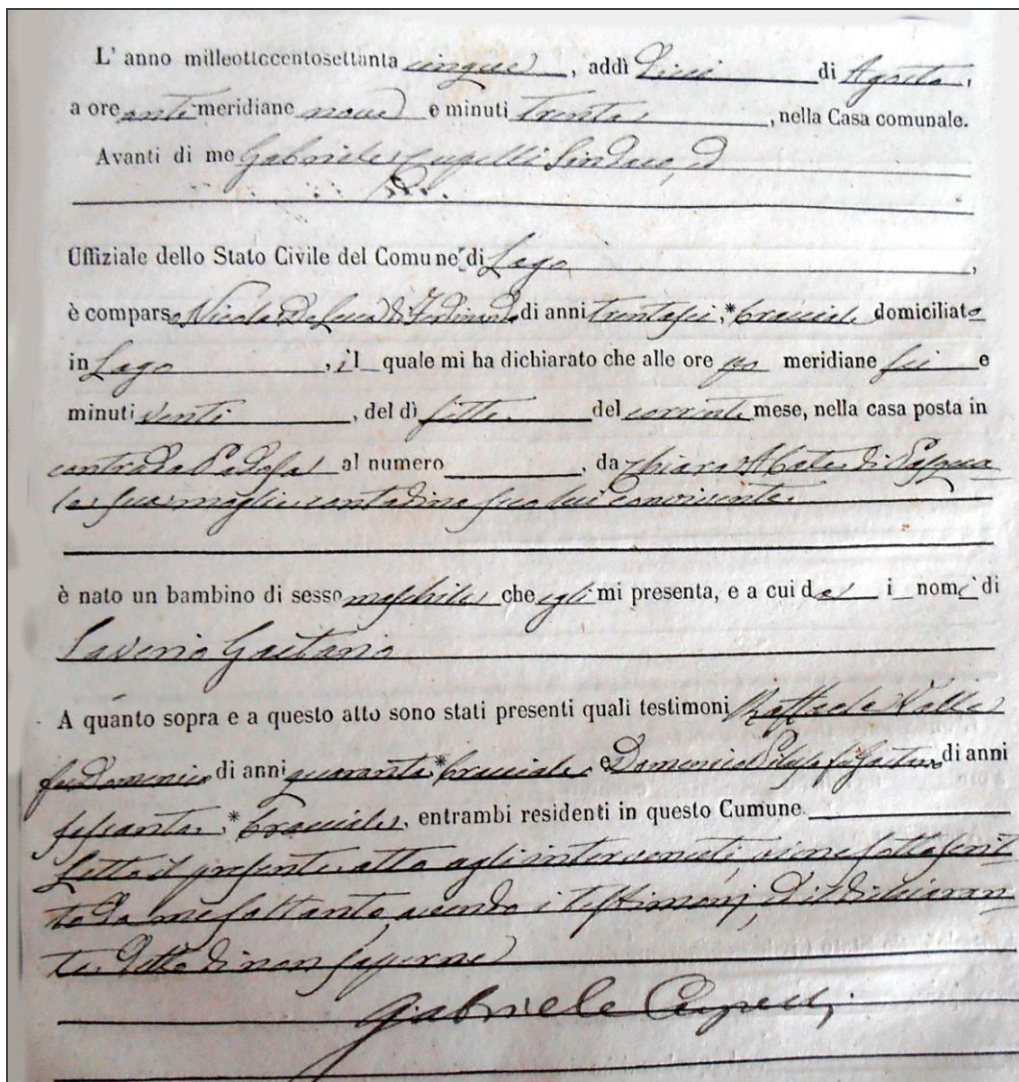 L' anno milleottccentosettanta cinque, addì Dieci di Agosto,
a ore anti meridiane nove e minuti trenta, nella Casa comunale.
Avanti di me Gabriele Cupelli Sindaco, ed
Uffiziale dello Stato Civile del Comune di Lago,
è comparso Nicola De Luca di Ferdinando di anni trentasei, *bracciale domiciliato
in Lago, il quale mi ha dichiarato che alle ore po meridiane sei e
minuti venti, del dì sette del corrente mese, nella casa posta in
contrada al numero, da Chiara Abate di Pasqua
le sua moglie contadina seco lui convivente.
è nato un bambino di sesso maschile che egli mi presenta, e a cui da i nomi di
Saverio Gaetano
A quanto sopra e a questo atto sono stati presenti quali testimoni Raffaele Valle
fu Domenico di anni quaranta *bracciale, e Domenico fu Gaetano di anni
sessanta, *bracciale, entrambi residenti in questo Cumune.
Letto il presente atto agli intervenuti, viene sottoscrit
to da me soltanto, avendo i testimonj, ed il dichiaran
te detto di non saperne
Gabriele Cupelli